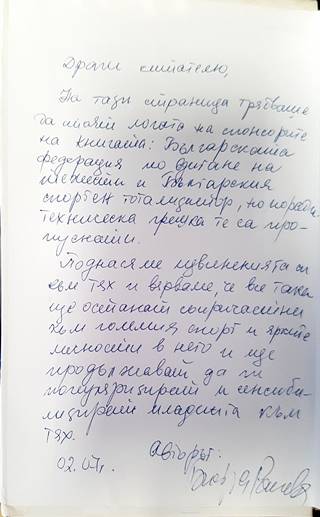 Драги читателю,
На тази страница трябваше
да стоят логата на спонсорите
на книгата: Българската
федерация по вдигане на
тежести и Български
спортен тотализатор, но поради
техническа грешка те са про-
пуснати.
Поднасяме извиненията си
към тях и вярваме, че все така
ще останат съпричастни
към големия спорт и ярките
личности в него и ще
продължават да ги
популяризират и сенсиби-
лизират младината към
тях.
02.07г.
Авторът: